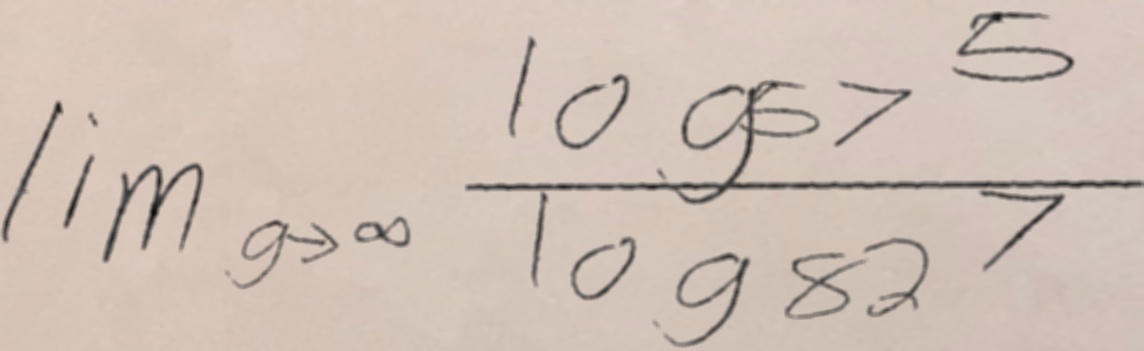 lim g→∞ log57 5 / log82 7